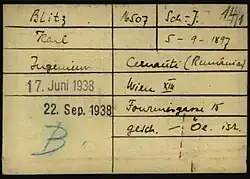 Blitz №507 Sch-J. 14/1
Karl 5-9-1897
Ingenieur Cernauti (Rumänia)
17. Juni 1938 Wien XIII
22. Sep. 1938 Fourniergasse 15
B gesch. – Öe. isr.